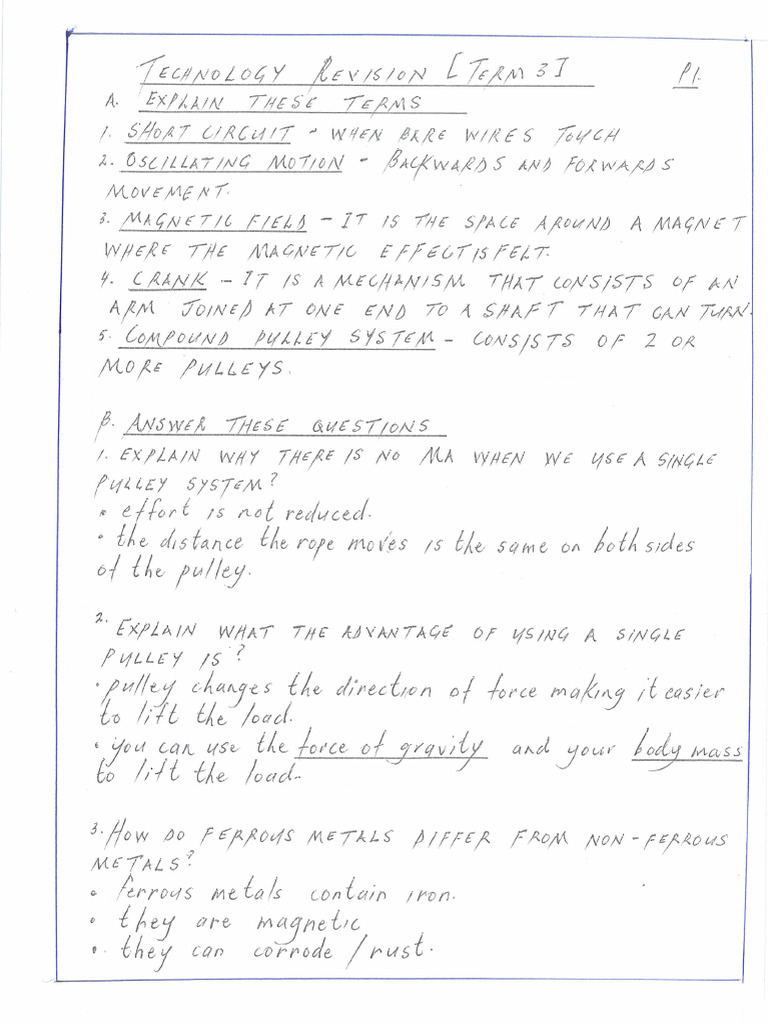 TECHNOLOGY REVISION [TERM 3] P1.
A. EXPLAIN THESE TERMS
1. SHORT CIRCUIT - WHEN BARE WIRES TOUCH
2. OSCILLATING MOTION - BACKWARDS AND FORWARDS
MOVEMENT.
3. MAGNETIC FIELD - IT IS THE SPACE AROUND A MAGNET
WHERE THE MAGNETIC EFFECT IS FELT.
4. CRANK - IT IS A MECHANISM THAT CONSISTS OF AN
ARM JOINED AT ONE END TO A SHAFT THAT CAN TURN.
5. COMPOUND PULLEY SYSTEM - CONSISTS OF 2 OR
MORE PULLEYS.
B. ANSWER THESE QUESTIONS
1. EXPLAIN WHY THERE IS NO MA WHEN WE USE A SINGLE
PULLEY SYSTEM?
• effort is not reduced.
• the distance the rope moves is the same on both sides
of the pulley.
2. EXPLAIN WHAT THE ADVANTAGE OF USING A SINGLE
PULLEY IS?
• pulley changes the direction of force making it easier
to lift the load.
• you can use the force of gravity and your body mass
to lift the load.
3. HOW DO FERROUS METALS DIFFER FROM NON-FERROUS
METALS?
• ferrous metals contain iron.
• they are magnetic
• they can corrode/rust.